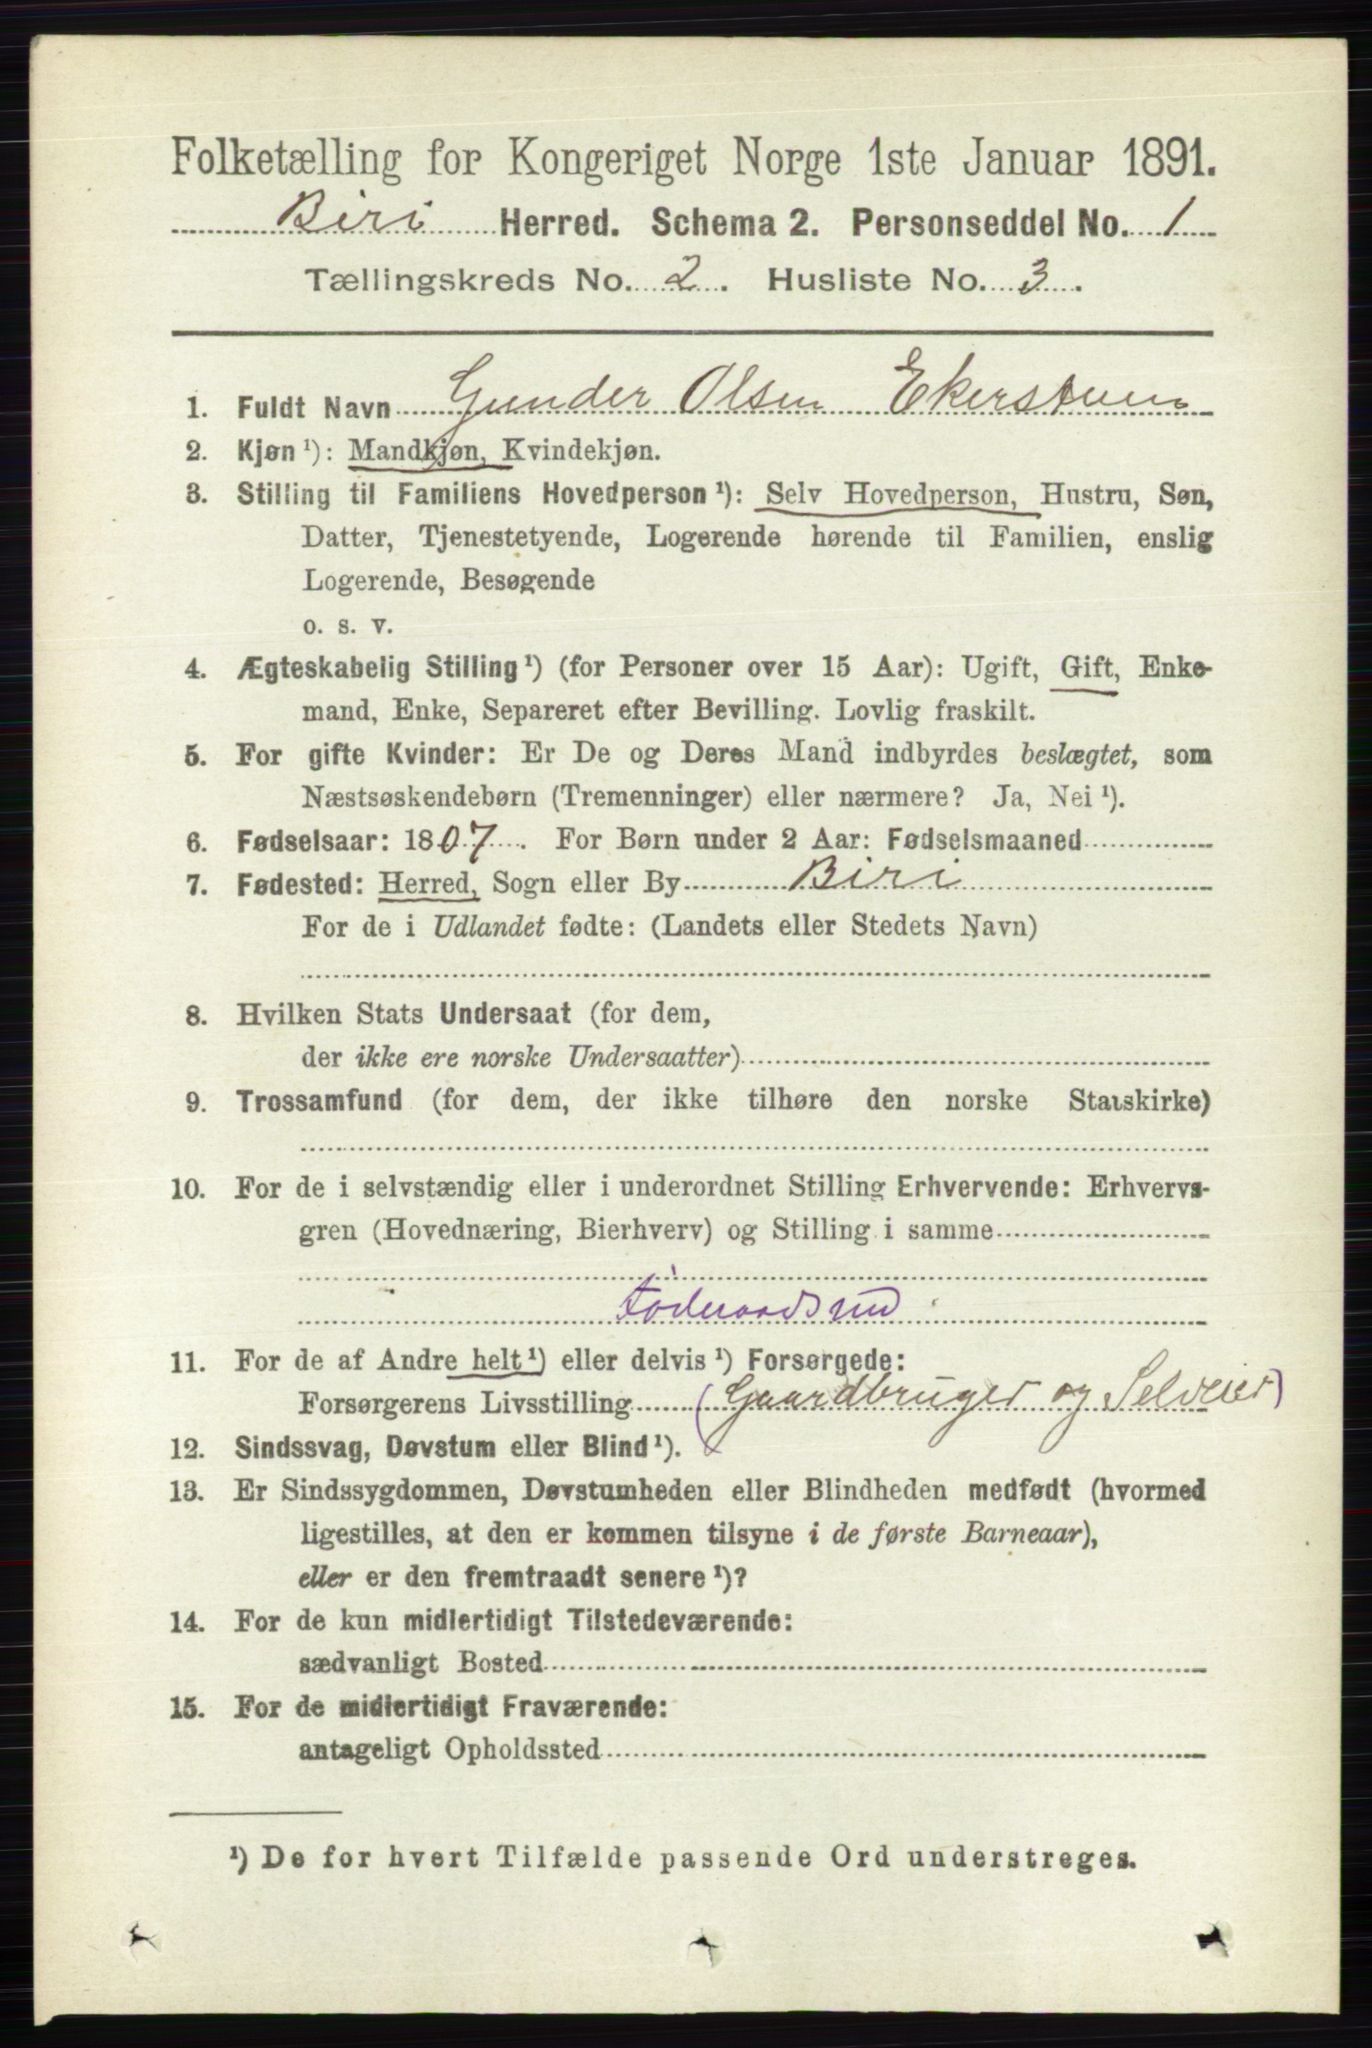 Folketælling for Kongeriget Norge 1ste Januar 1891.
Biri Herred. Schema 2. Personseddel No. 1
Tællingskreds No. 2. Husliste No. 3.
1. Fuldt Navn Gunder Olsen Ekerstuen
2. Kjøn ¹): Mandkjøn, Kvindekjøn.
3. Stilling til Familiens Hovedperson ¹): Selv Hovedperson, Hustru, Søn,
Datter, Tjenestetyende, Logerende hørende til Familien, enslig
Logerende, Besøgende
o. s. v.
4. Ægteskabelig Stilling ¹) (for Personer over 15 Aar): Ugift, Gift, Enke-
mand, Enke, Separeret efter Bevilling. Lovlig fraskilt.
5. For gifte Kvinder: Er De og Deres Mand indbyrdes beslægtet, som
Næstsøskendebørn (Tremenninger) eller nærmere? Ja, Nei ¹).
6. Fødselsaar: 1807. For Børn under 2 Aar: Fødselsmaaned
7. Fødested: Herred, Sogn eller By Biri
For de i Udlandet fødte: (Landets eller Stedets Navn)
8. Hvilken Stats Undersaat (for dem,
der ikke ere norske Undersaatter)
9. Trossamfund (for dem, der ikke tilhøre den norske Statskirke)
10. For de i selvstændig eller i underordnet Stilling Erhvervende: Erhvervs-
gren (Hovednæring, Bierhverv) og Stilling i samme
Føderaadsmd
11. For de af Andre helt ¹) eller delvis ¹) Forsørgede:
Forsørgerens Livsstilling (Gaardbruger og Selveier)
12. Sindssvag, Døvstum eller Blind ¹).
13. Er Sindssygdommen, Døvstumheden eller Blindheden medfødt (hvormed
ligestilles, at den er kommen tilsyne i de første Barneaar),
eller er den fremtraadt senere ¹)?
14. For de kun midlertidigt Tilstedeværende:
sædvanligt Bosted
15. For de midlertidigt Fraværende:
antageligt Opholdssted
¹) De for hvert Tilfælde passende Ord understreges.